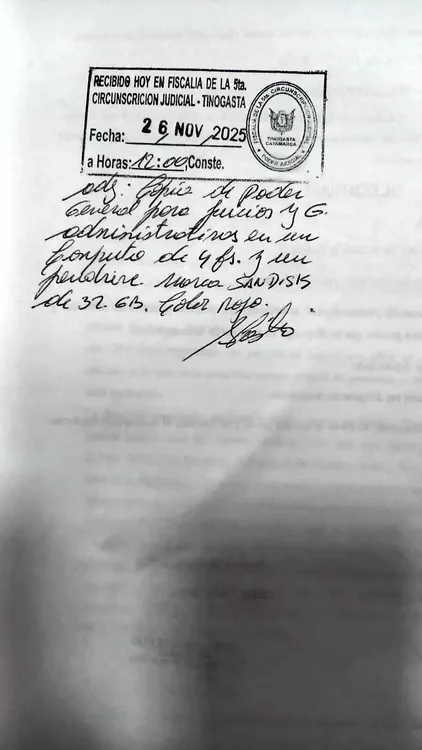 RECIBIDO HOY EN FISCALIA DE LA 5ta.
CIRCUNSCRICION JUDICIAL - TINOGASTA
Fecha: 26 NOV 2025
a Horas: 12:00 Conste.
FISCALIA DE LA 5ta CIRCUNSCRIPCION JUDICIAL
TINOGASTA
CATAMARCA
PODER JUDICIAL
adj: Copia de Poder
General para juicios y G.
administrativos en un
Conjunto de 4 fs. y un
pendrive marca SANDISK
de 32 GB. Color rojo.